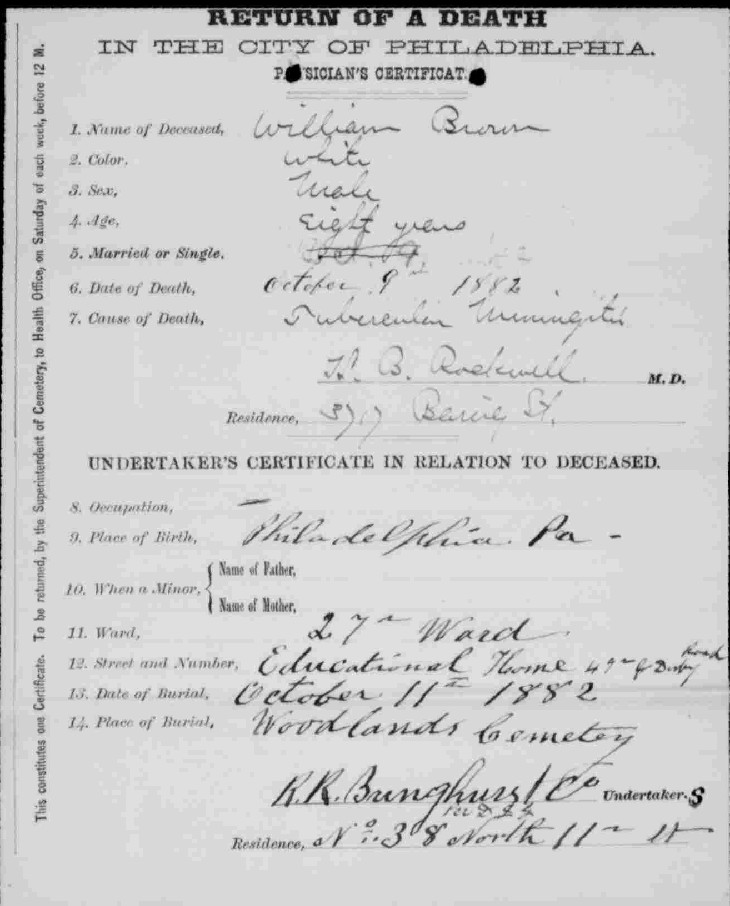 RETURN OF A DEATH
IN THE CITY OF PHILADELPHIA.
P SICIAN'S CERTIFICAT
1. Name of Deceased, William Brown
2. Color, White
3. Sex, Male
4. Age, Eight years
5. Married or Single,
6. Date of Death, October 9th 1882
7. Cause of Death, Tubercular Miningitis
B. Rockwell. M.D.
Residence, 3717 Baring St.
UNDERTAKER'S CERTIFICATE IN RELATION TO DECEASED.
8. Occupation, —
9. Place of Birth, Philadelphia. Pa -
10. When a Minor, { Name of Father,
Name of Mother,
11. Ward, 27th Ward
12. Street and Number, Educational Home 49th & Darby Road
13. Date of Burial, October 11th 1882
14. Place of Burial, Woodlands Cemetey
R. R. Bringhurst & Co Undertaker.s
Residence, No. 38 North 11th St
This constitutes one Certificate. To be returned, by the Superintendent of Cemetery, to Health Office, on Saturday of each week, before 12 M.